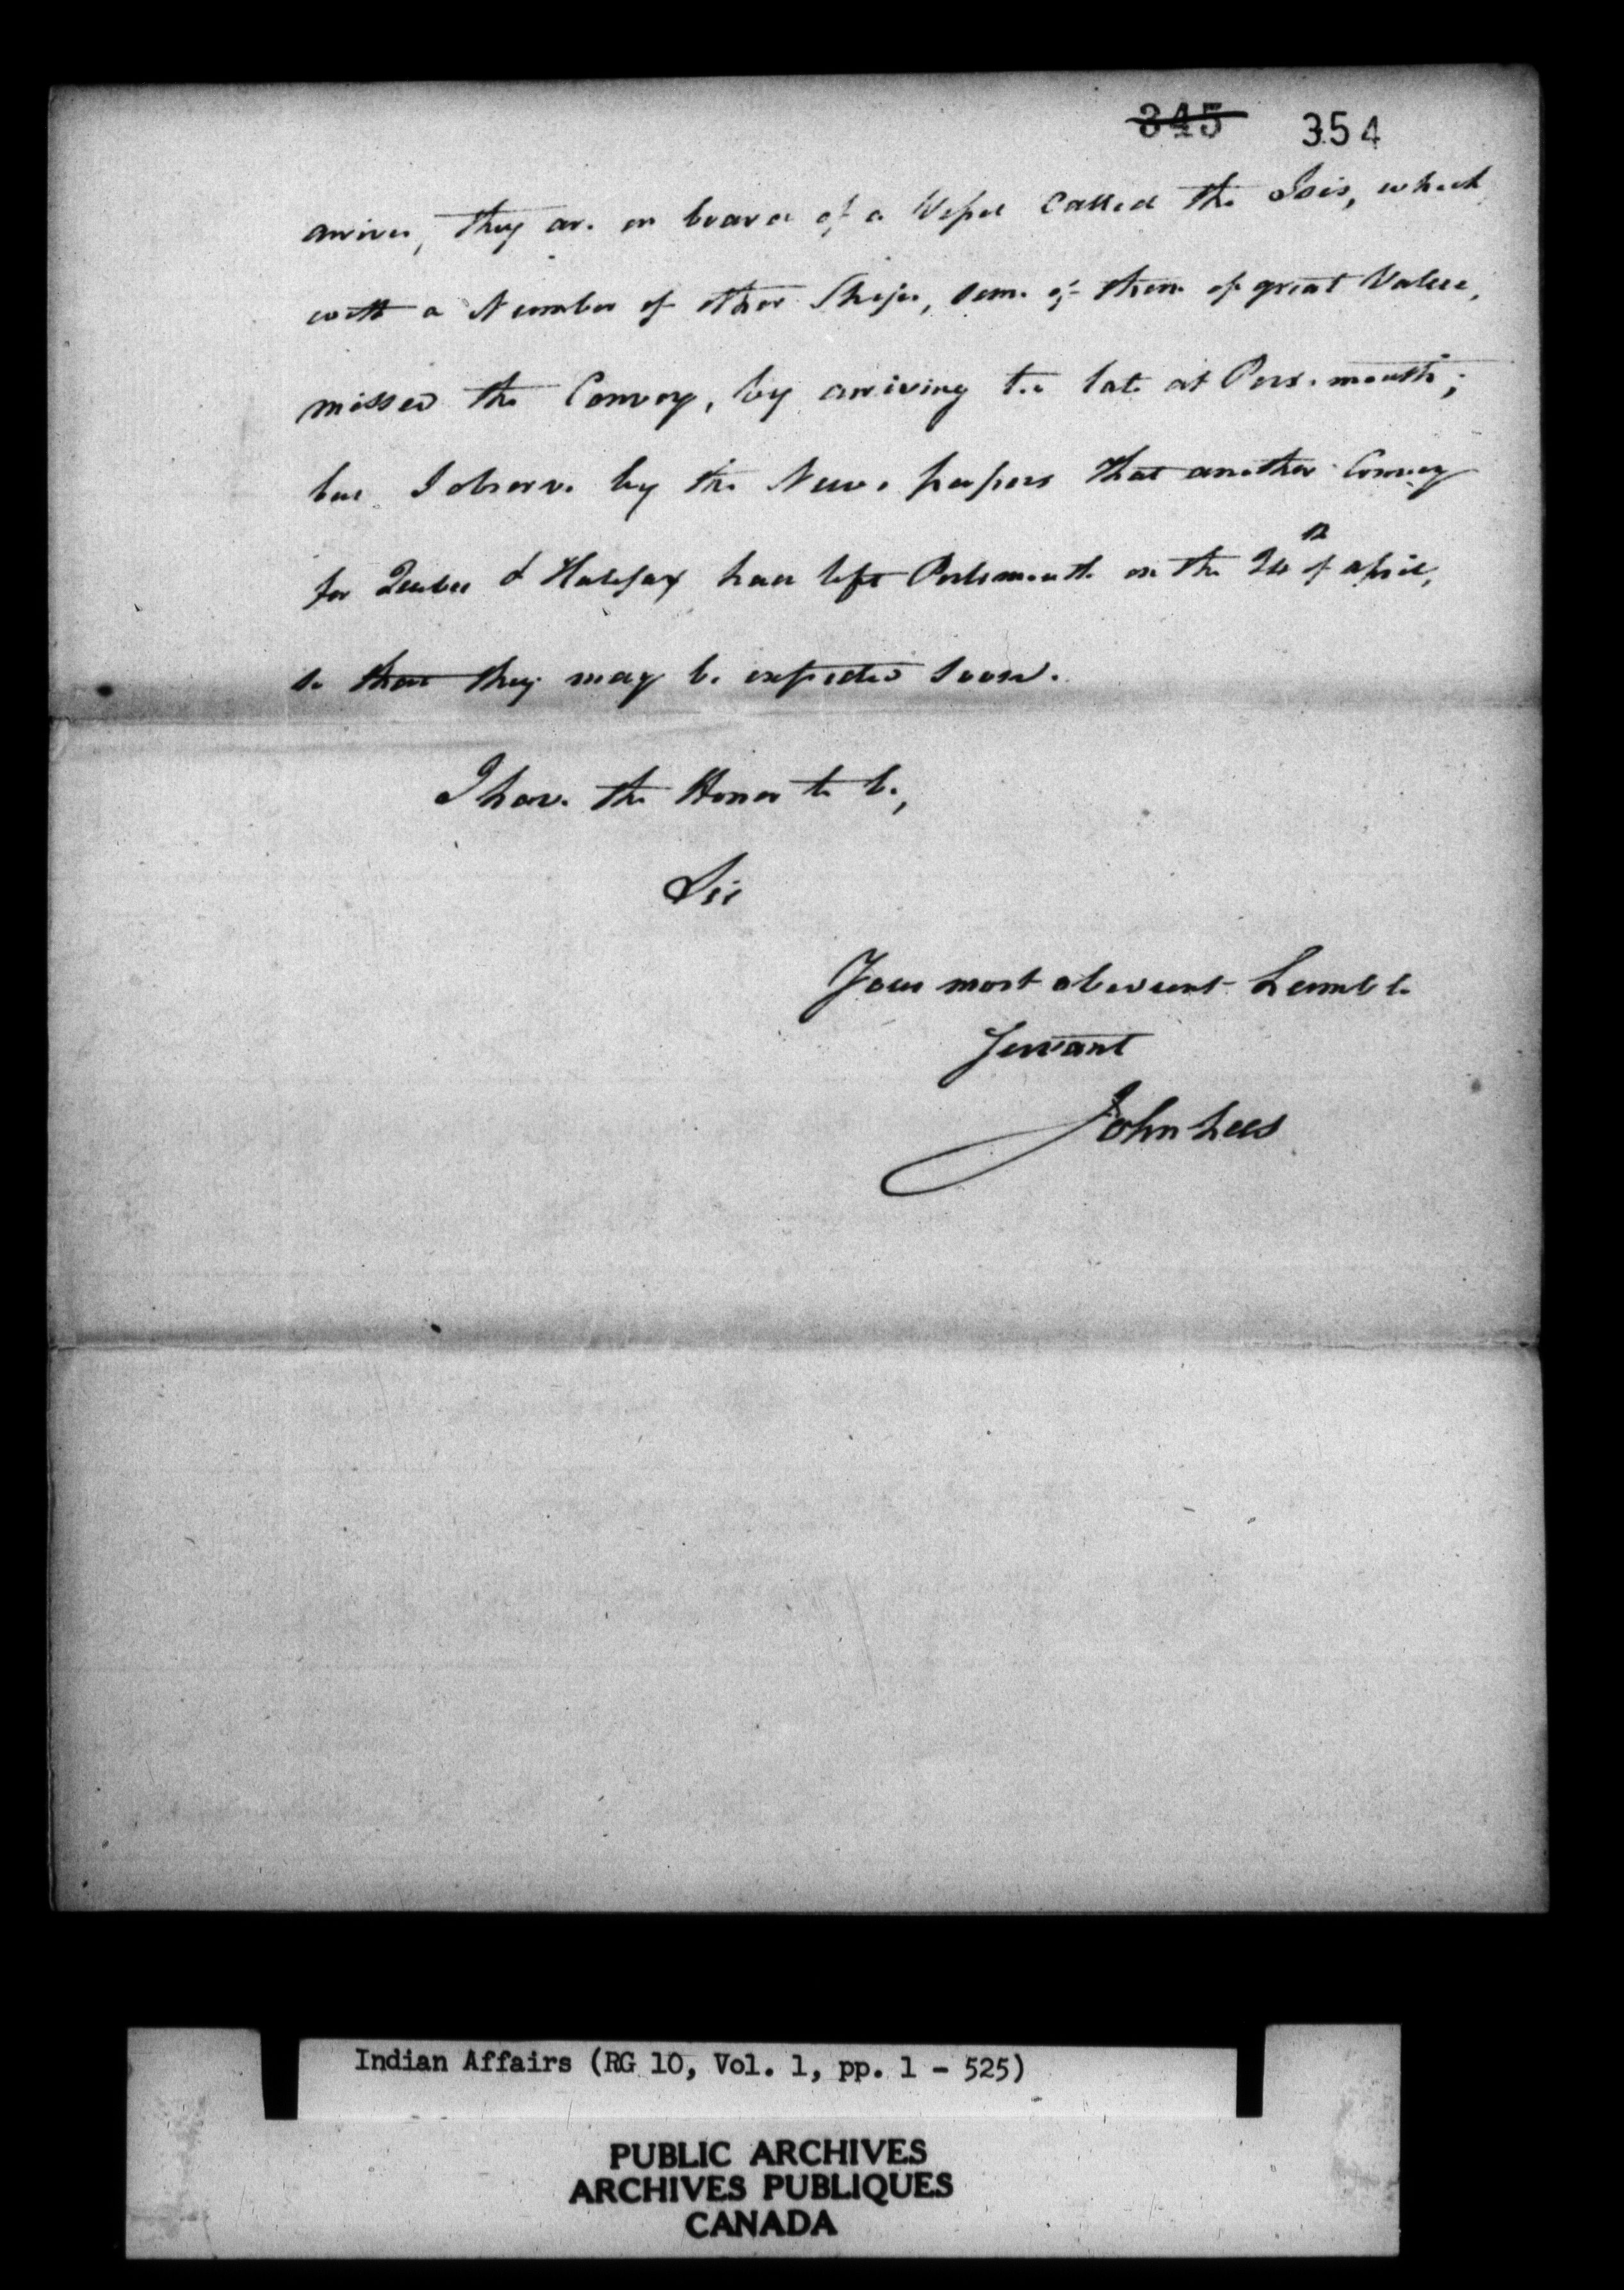 345 354
arrives, they are on board of a Vessel Called the Isis, which
with a Number of other Ships, some of them of great Value,
missed the Convoy, by arriving too late at Portsmouth;
but I observe by the News papers that another Convoy
for Quebec & Halifax had left Portsmouth on the of April,
so that they may be expected soon.
I have the Honor to be,
Sir
Your most obedient humble
Servant
John Lees
Indian Affairs (RG 10, Vol. 1, pp. 1 - 525)
PUBLIC ARCHIVES
ARCHIVES PUBLIQUES
CANADA